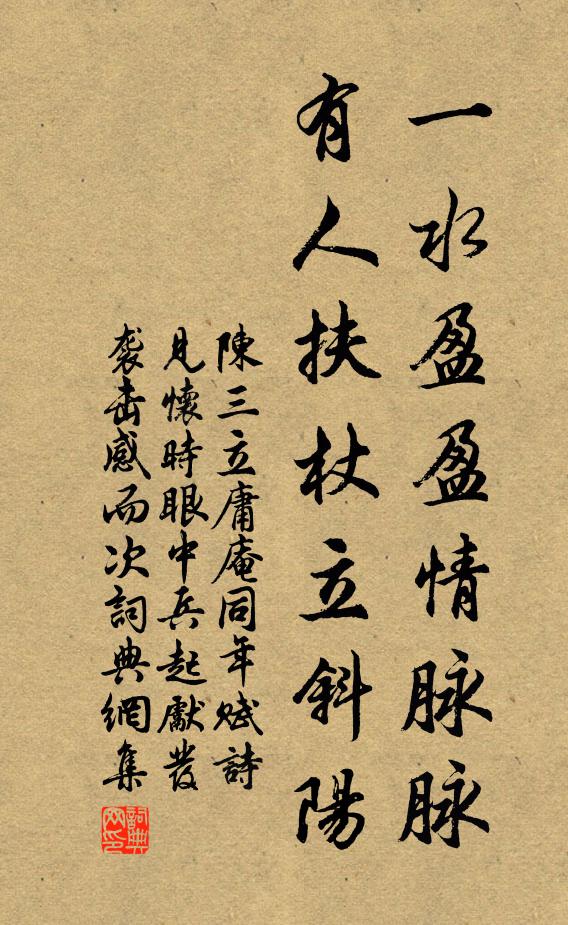 一水盈盈情脉脉
有人扶杖立斜陽
陳三立庸庵同年賦詩
見懷時眼中兵起獻發
袭击感而次詞典網集
詞典
网印